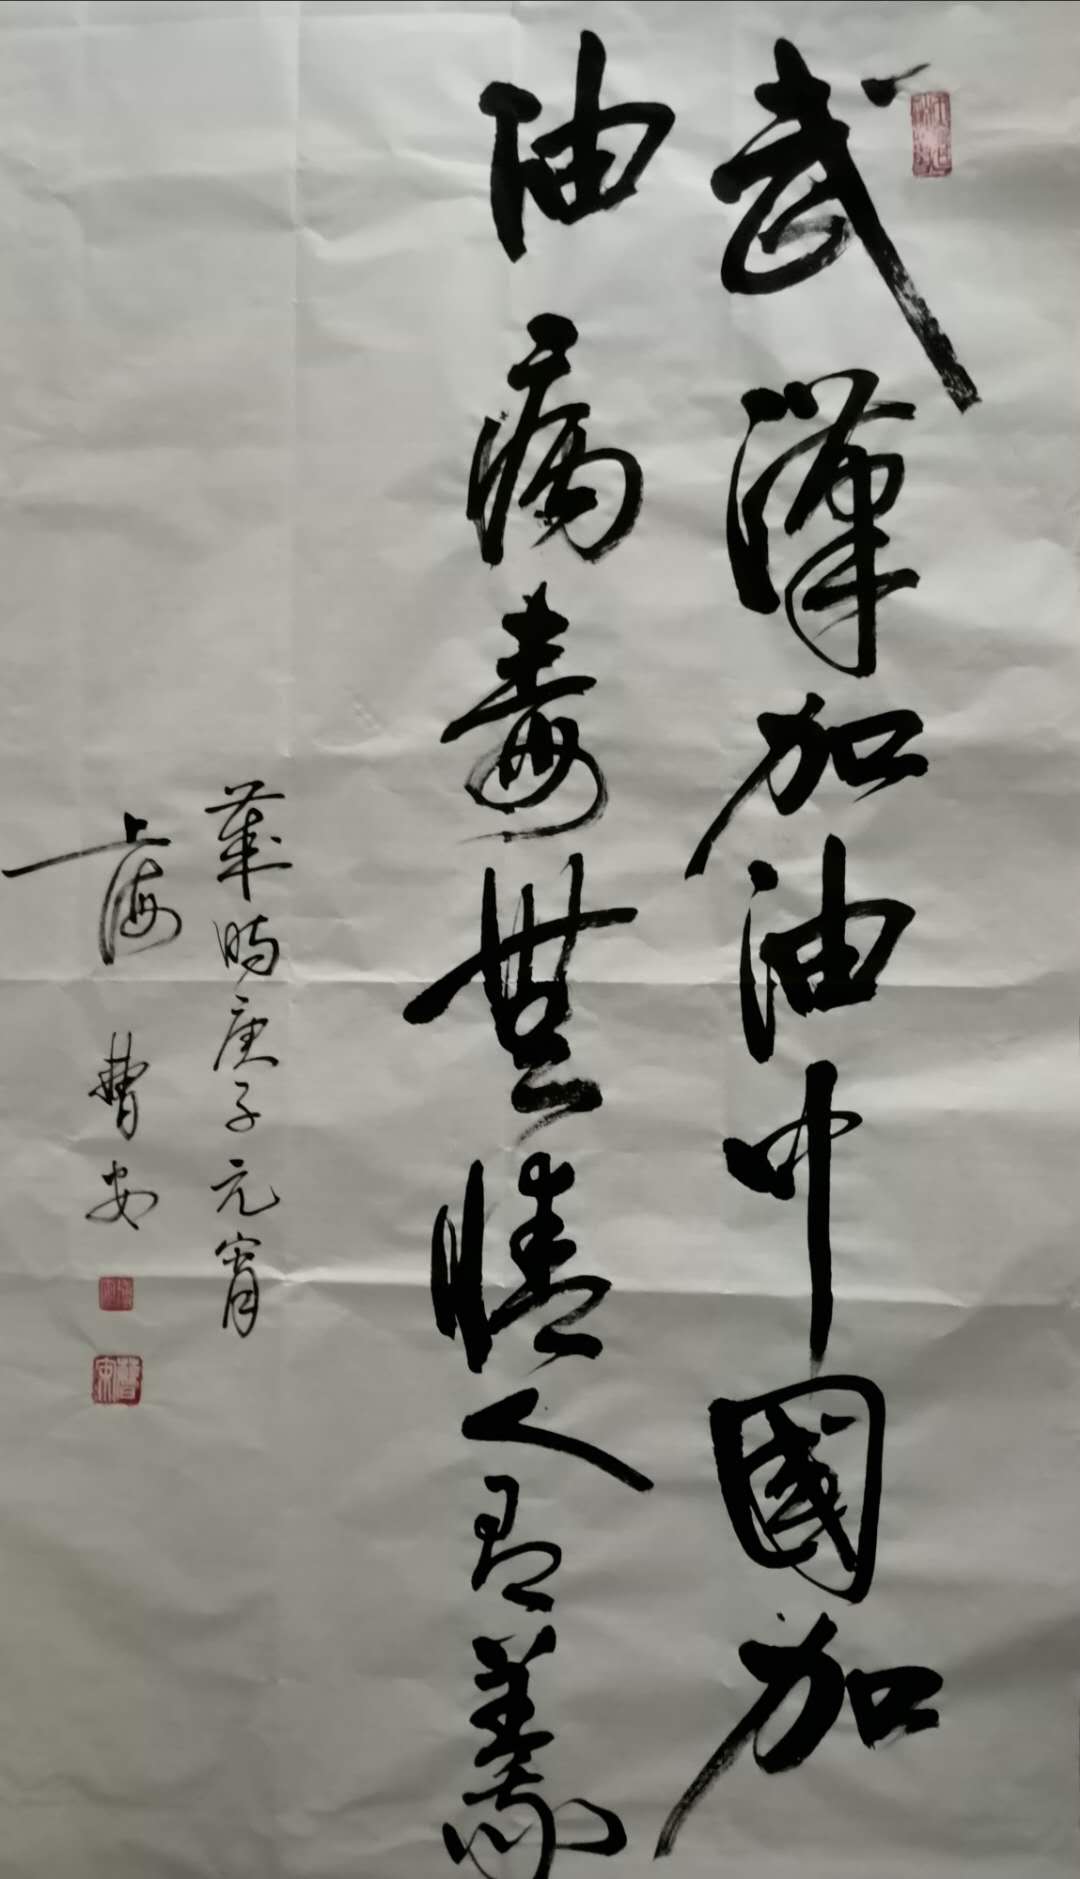 武漢加油中國加
油病毒無情人有義
歲時庚子元宵
上海 曹安